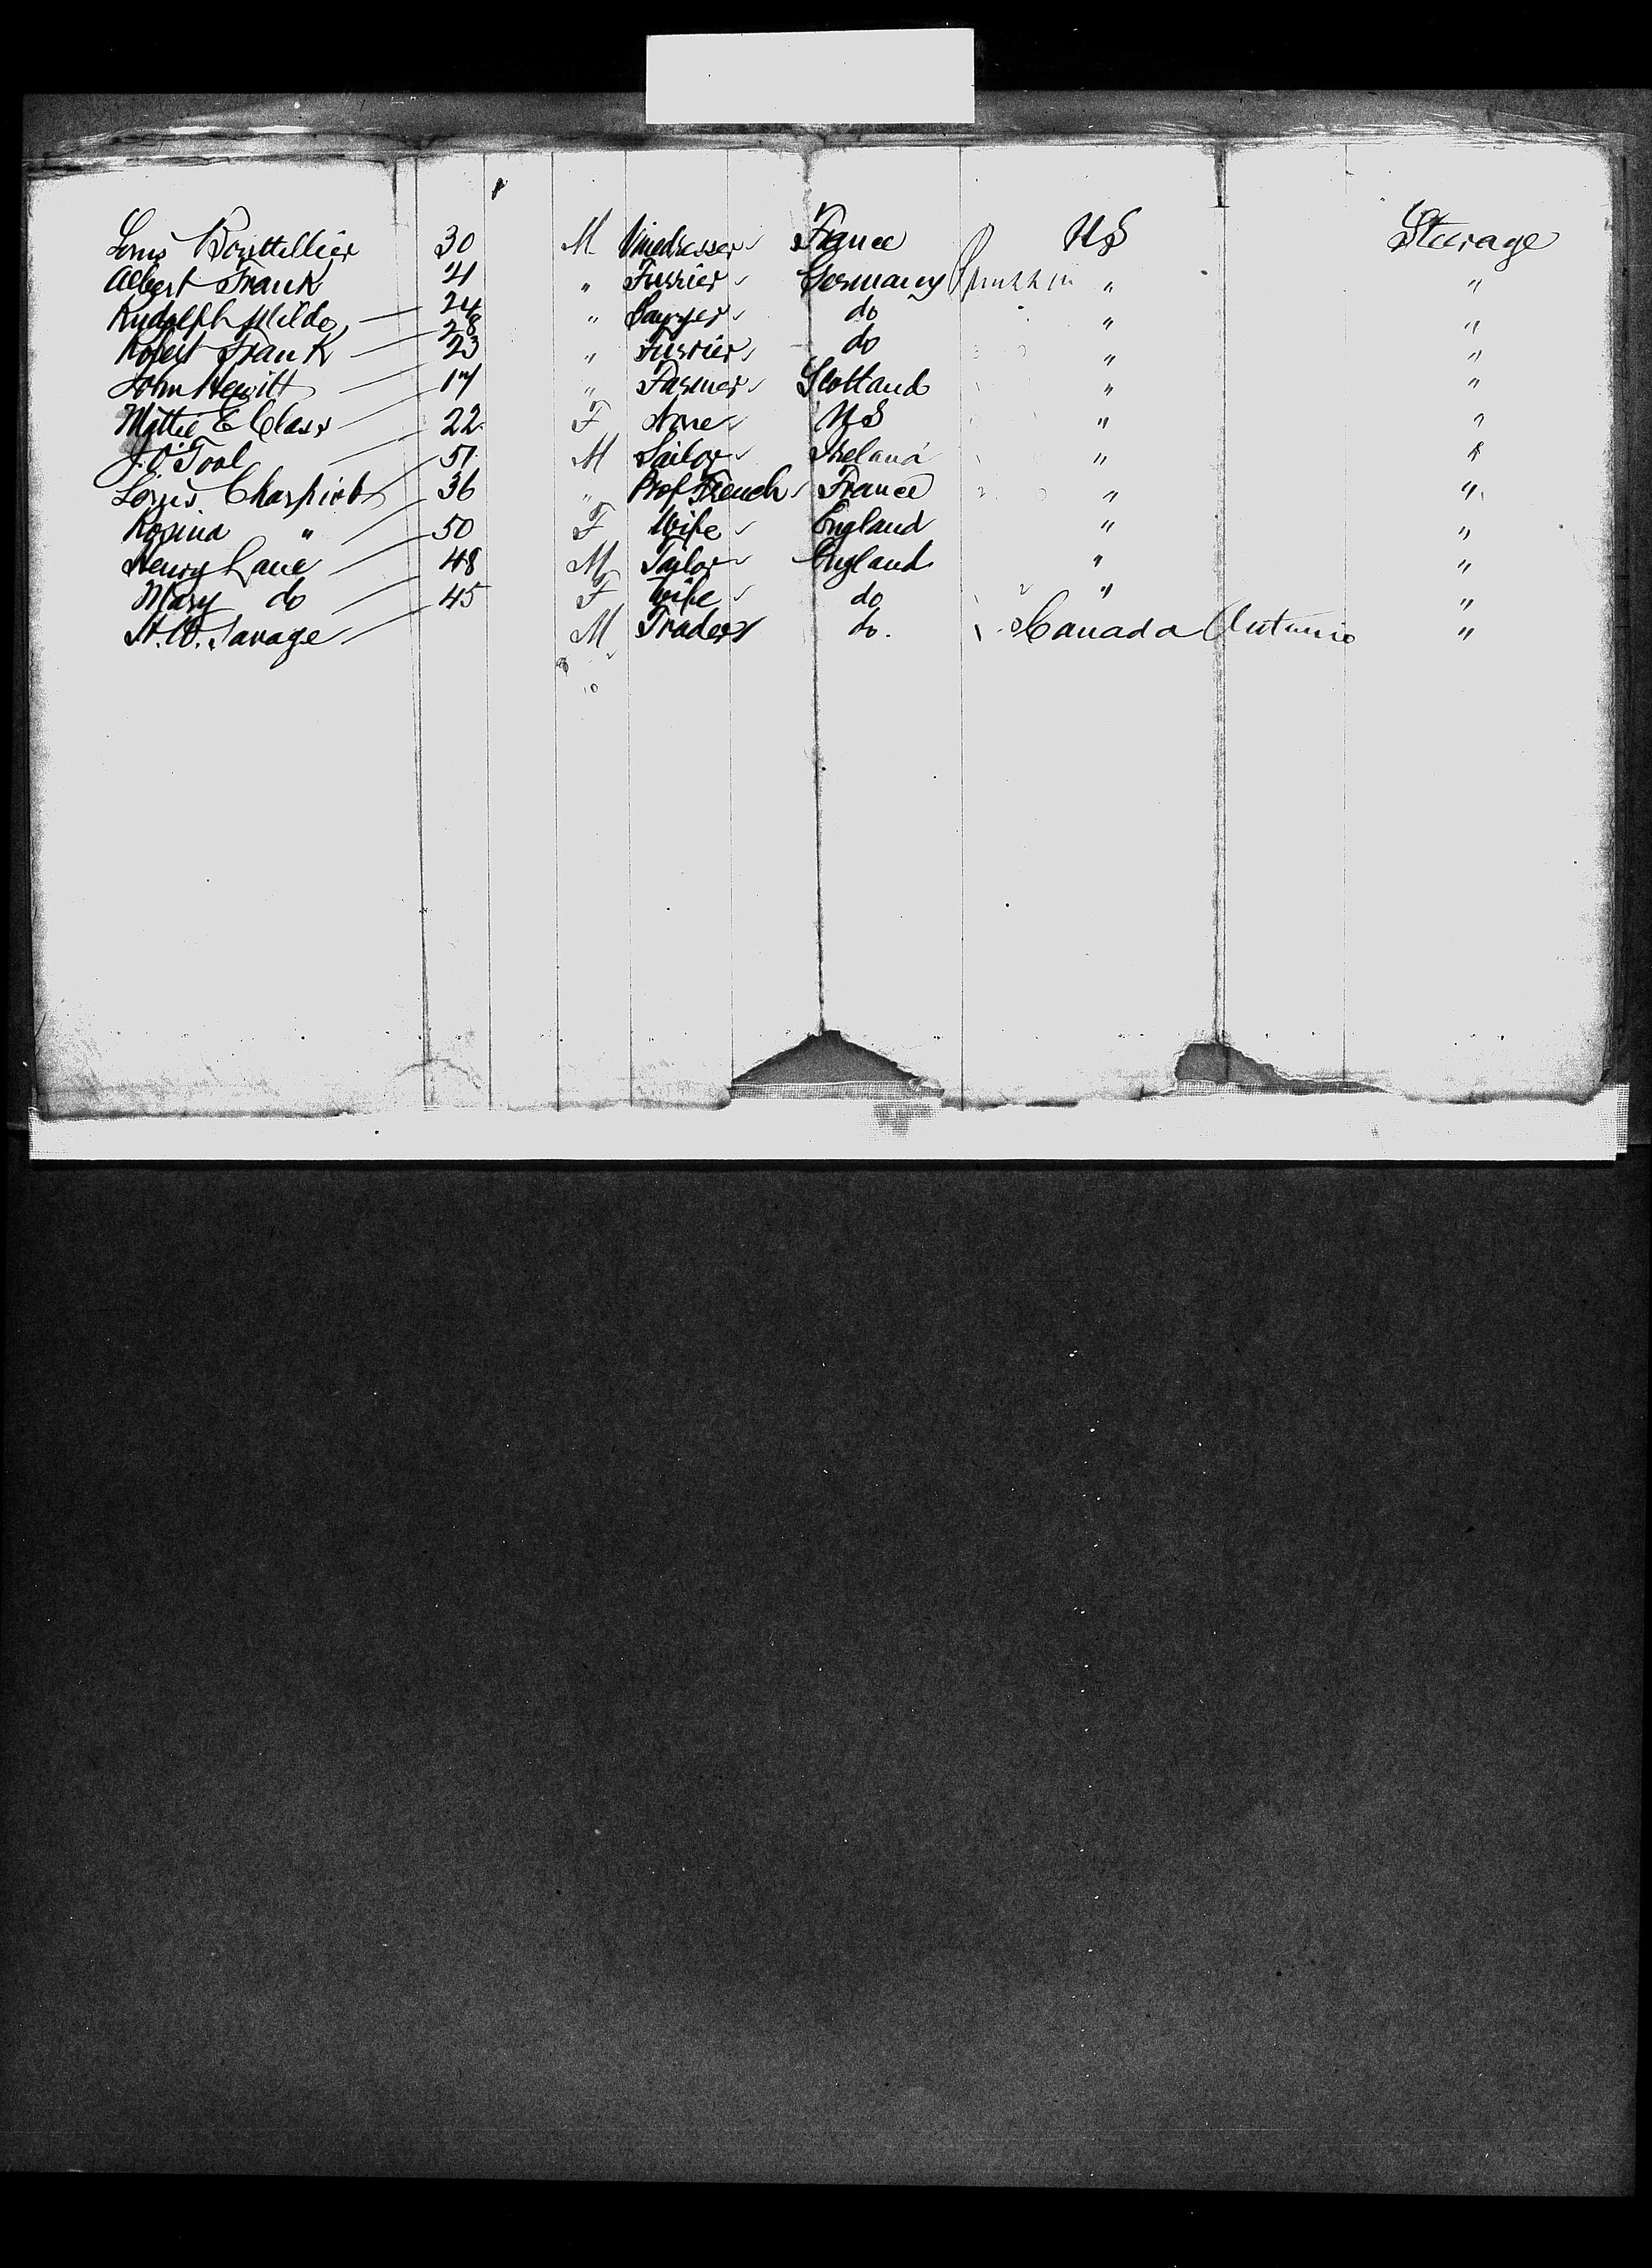 Louis Bouttellier 30 M Vinedresser France US Steerage
Albert Frank 21 " Furrier Germany Prussia " "
Rudolph Milde 24 " Sawyer do " "
Robert Frank 23 " Furrier do " "
John Hewitt 17 " Farmer Scotland " "
Mattie E Clark 22 F None US " "
J. O'Tool 51 M Sailor Ireland " "
Louis 36 " Prof French France " "
Rosina " 50 F Wife England " "
Henry Lane 48 M Tailor England " "
Mary do 45 F Wife do " "
Savage M Trader do. Canada Ontario "